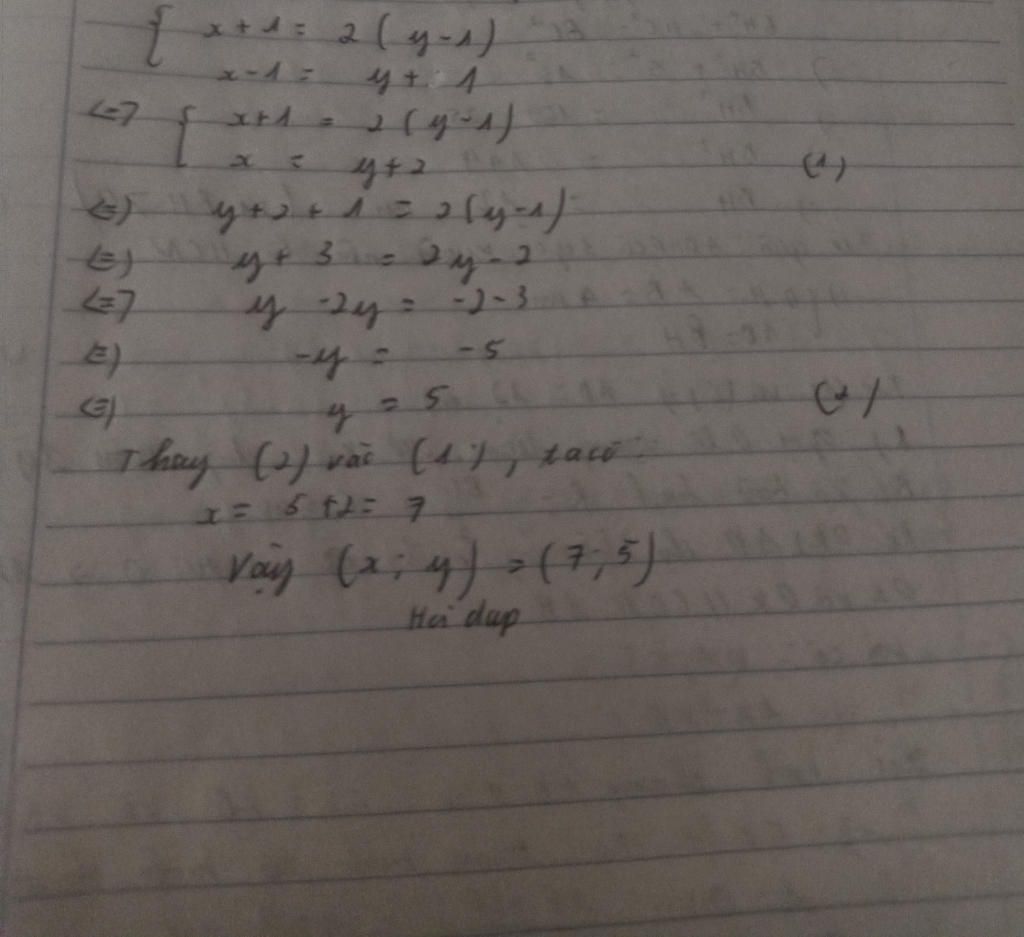 { x + 1 = 2 ( y - 1 )
x - 1 = y + 1
<=> { x + 1 = 2 ( y - 1 )
x = y + 2 (1)
<=> y + 2 + 1 = 2 ( y - 1 )
<=> y + 3 = 2y - 2
<=> y - 2y = -2 - 3
<=> -y = -5
<=> y = 5 (2)
Thay (2) vào (1), ta có:
x = 5 + 2 = 7
Vậy (x; y) = (7; 5)
Hoi dap